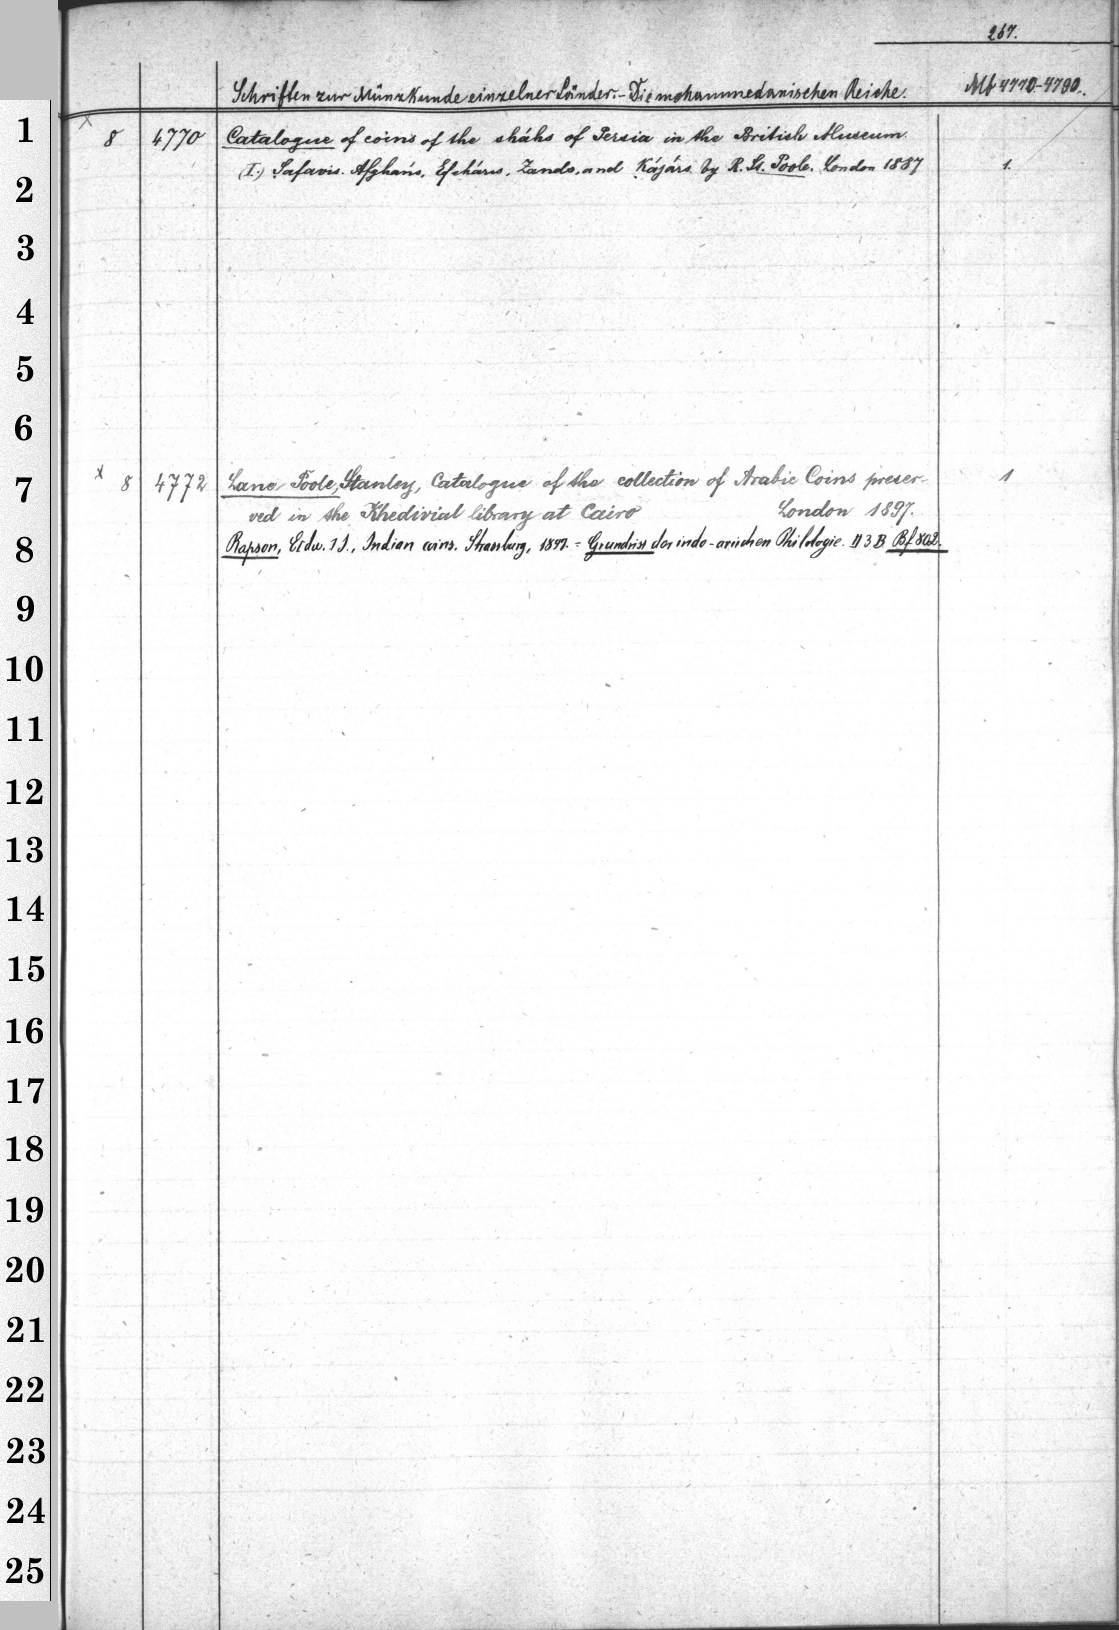 267.
Schriften zur Münzkunde einzelner Länder. - Die mohammedanischen Reiche. Mb 4770-4790.
1 x 8 4770 Catalogue of coins of the sháhs of Persia in the British Museum.
2 (I.) Safavis. Afgháns, Efsháris, Zands, and Kájárs by R. St. Poole. London 1887 1.
3
4
5
6
7 x 8 4772 Lane Poole, Stanley, Catalogue of the collection of Arabic Coins preser- 1
ved in the Khedivial library at Cairo London 1897.
8 Rapson, Edw. J., Indian coins. Strassburg, 1897. = Grundriss der indo-arischen Philologie. II 3 B Bf 802.
9
10
11
12
13
14
15
16
17
18
19
20
21
22
23
24
25